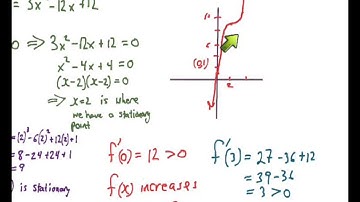 = 3x² - 12x + 12
0 ⇒ 3x² - 12x + 12 = 0
x² - 4x + 4 = 0
(x-2)(x-2) = 0
⇒ x=2 is where
we have a stationary
point
= (2)³ - 6(2)² + 12(2) + 1
= 8 - 24 + 24 + 1
= 9
) is stationary
(0,1)
2
f'(0) = 12 > 0
f(x) increases
f'(3) = 27 - 36 + 12
= 39 - 36
= 3 > 0